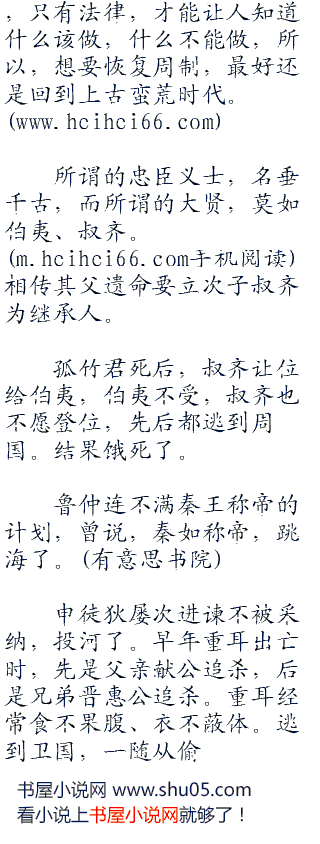 ，只有法律，才能让人知道
什么该做，什么不能做，所
以，想要恢复周制，最好还
是回到上古蛮荒时代。
(www.hcihci66.com)
所谓的忠臣义士，名垂
千古，而所谓的大贤，莫如
伯夷、叔齐。
(m.hcihci66.com手机阅读)
相传其父遗命要立次子叔齐
为继承人。
孤竹君死后，叔齐让位
给伯夷，伯夷不受，叔齐也
不愿登位，先后都逃到周
国。结果饿死了。
鲁仲连不满秦王称帝的
计划，曾说，秦如称帝，跳
海了。(有意思书院)
申徒狄屡次进谏不被采
纳，投河了。早年重耳出亡
时，先是父亲献公追杀，后
是兄弟晋惠公追杀。重耳经
常食不果腹、衣不蔽体。逃
到卫国，一随从偷
书屋小说网 www.shu05.com
看小说上书屋小说网就够了！